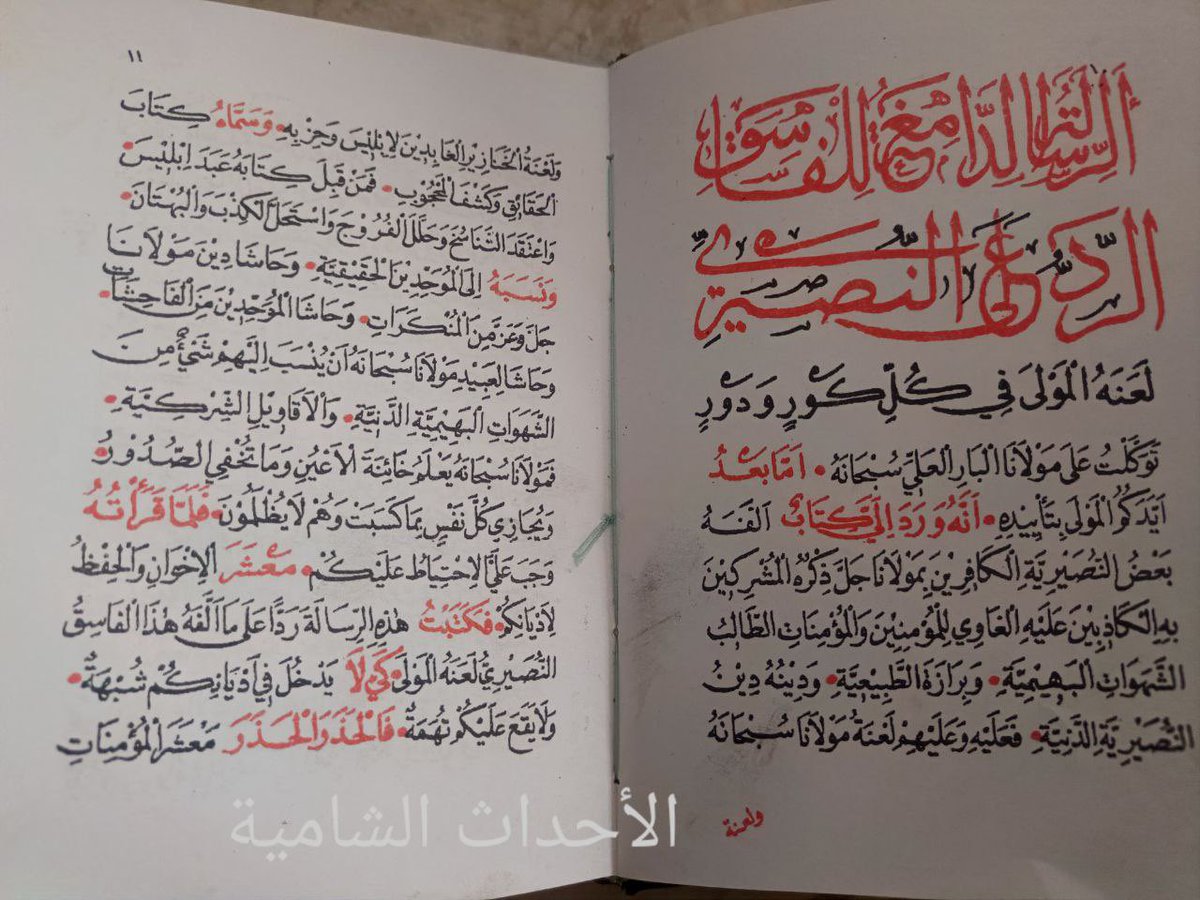 ١٠
الرسالة الدامغة للفاسق
الرد على النصيري
لَعَنَهُ الْمَوْلَى فِي كُلِّ كَوْرٍ وَدَوْرٍ
تَوَكَّلْتُ عَلَى مَوْلَانَا الْبَارِ الْعَلِيِّ سُبْحَانَهُ • اَمَّا بَعْدُ
اَيَّدَكُمُ الْمَوْلَى بِتَأْيِيْدِهِ • اَنَّهُ وَرَدَ اِلَيَّ كِتَابٌ اَلَّفَهُ
بَعْضُ النُّصَيْرِيَّةِ الْكَافِرِيْنَ بِمَوْلَانَا جَلَّ ذِكْرُهُ الْمُشْرِكِيْنَ
بِهِ الْكَاذِبِيْنَ عَلَيْهِ الْغَاوِي لِلْمُؤْمِنِيْنَ وَالْمُؤْمِنَاتِ الطَّالِبُ
الشَّهَوَاتِ الْبَهِيْمِيَّةِ • وَبِرَازَةَ الطَّبِيْعِيَّةِ • وَدِيْنُهُ دِيْنُ
النُّصَيْرِيَّةِ الدَّنِيَّةِ • فَعَلَيْهِ وَعَلَيْهِمْ لَعْنَةُ مَوْلَانَا سُبْحَانَهُ
ولعنة
١١
وَلَعْنَةُ الْخَنَازِيْرِ الْعَابِدِيْنَ لِاِبْلِيْسَ وَحِزْبِهِ • وَسَمَّاهُ كِتَابَ
الْحَقَايِقِ وَكَشْفَ الْمَحْجُوْبِ • فَمَنْ قَبِلَ كِتَابَهُ عَبَدَ اِبْلِيْسَ •
وَاعْتَقَدَ التَّنَاسُخَ وَحَلَّلَ الْفُرُوْجَ وَاسْتَحَلَّ الْكَذِبَ وَالْبُهْتَانَ •
وَنَسَبَهُ اِلَى الْمُوَحِّدِيْنَ الْحَقِيْقِيَّةِ • وَحَاشَا دِيْنَ مَوْلَانَا
جَلَّ وَعَزَّ مِنَ الْمُنْكَرَاتِ • وَحَاشَا الْمُوَحِّدِيْنَ مِنَ الْفَاحِشَاتِ •
وَحَاشَا لِعَبِيْدِ مَوْلَانَا سُبْحَانَهُ اَنْ يُنْسَبَ اِلَيْهِمْ شَيْءٌ مِنَ
الشَّهَوَاتِ الْبَهِيْمِيَّةِ الدَّنِيَّةِ • وَالْاَقَاوِيْلِ الشِّرْكِيَّةِ •
فَمَوْلَانَا سُبْحَانَهُ يَعْلَمُ خَائِنَةَ الْاَعْيُنِ وَمَا تُخْفِي الصُّدُوْرُ •
وَيُجَازِي كُلَّ نَفْسٍ بِمَا كَسَبَتْ وَهُمْ لَا يُظْلَمُوْنَ • فَلَمَّا قَرَأْتُهُ
وَجَبَ عَلَيَّ الْاِحْتِيَاطُ عَلَيْكُمْ • مَعْشَرَ الْاِخْوَانِ وَالْحِفْظُ
لِاَدْيَانِكُمْ • فَكَتَبْتُ هٰذِهِ الرِّسَالَةَ رَدًّا عَلَى مَا اَلَّفَهُ هٰذَا الْفَاسِقُ
النُّصَيْرِيُّ لَعَنَهُ الْمَوْلَى • كَيْ لَا يَدْخُلَ فِي اَدْيَانِكُمْ شُبْهَةٌ •
وَلَا يَقَعَ عَلَيْكُمْ تُهْمَةٌ • فَالْحَذَرَ الْحَذَرَ مَعْشَرَ الْمُؤْمِنَاتِ
الأحداث الشامية